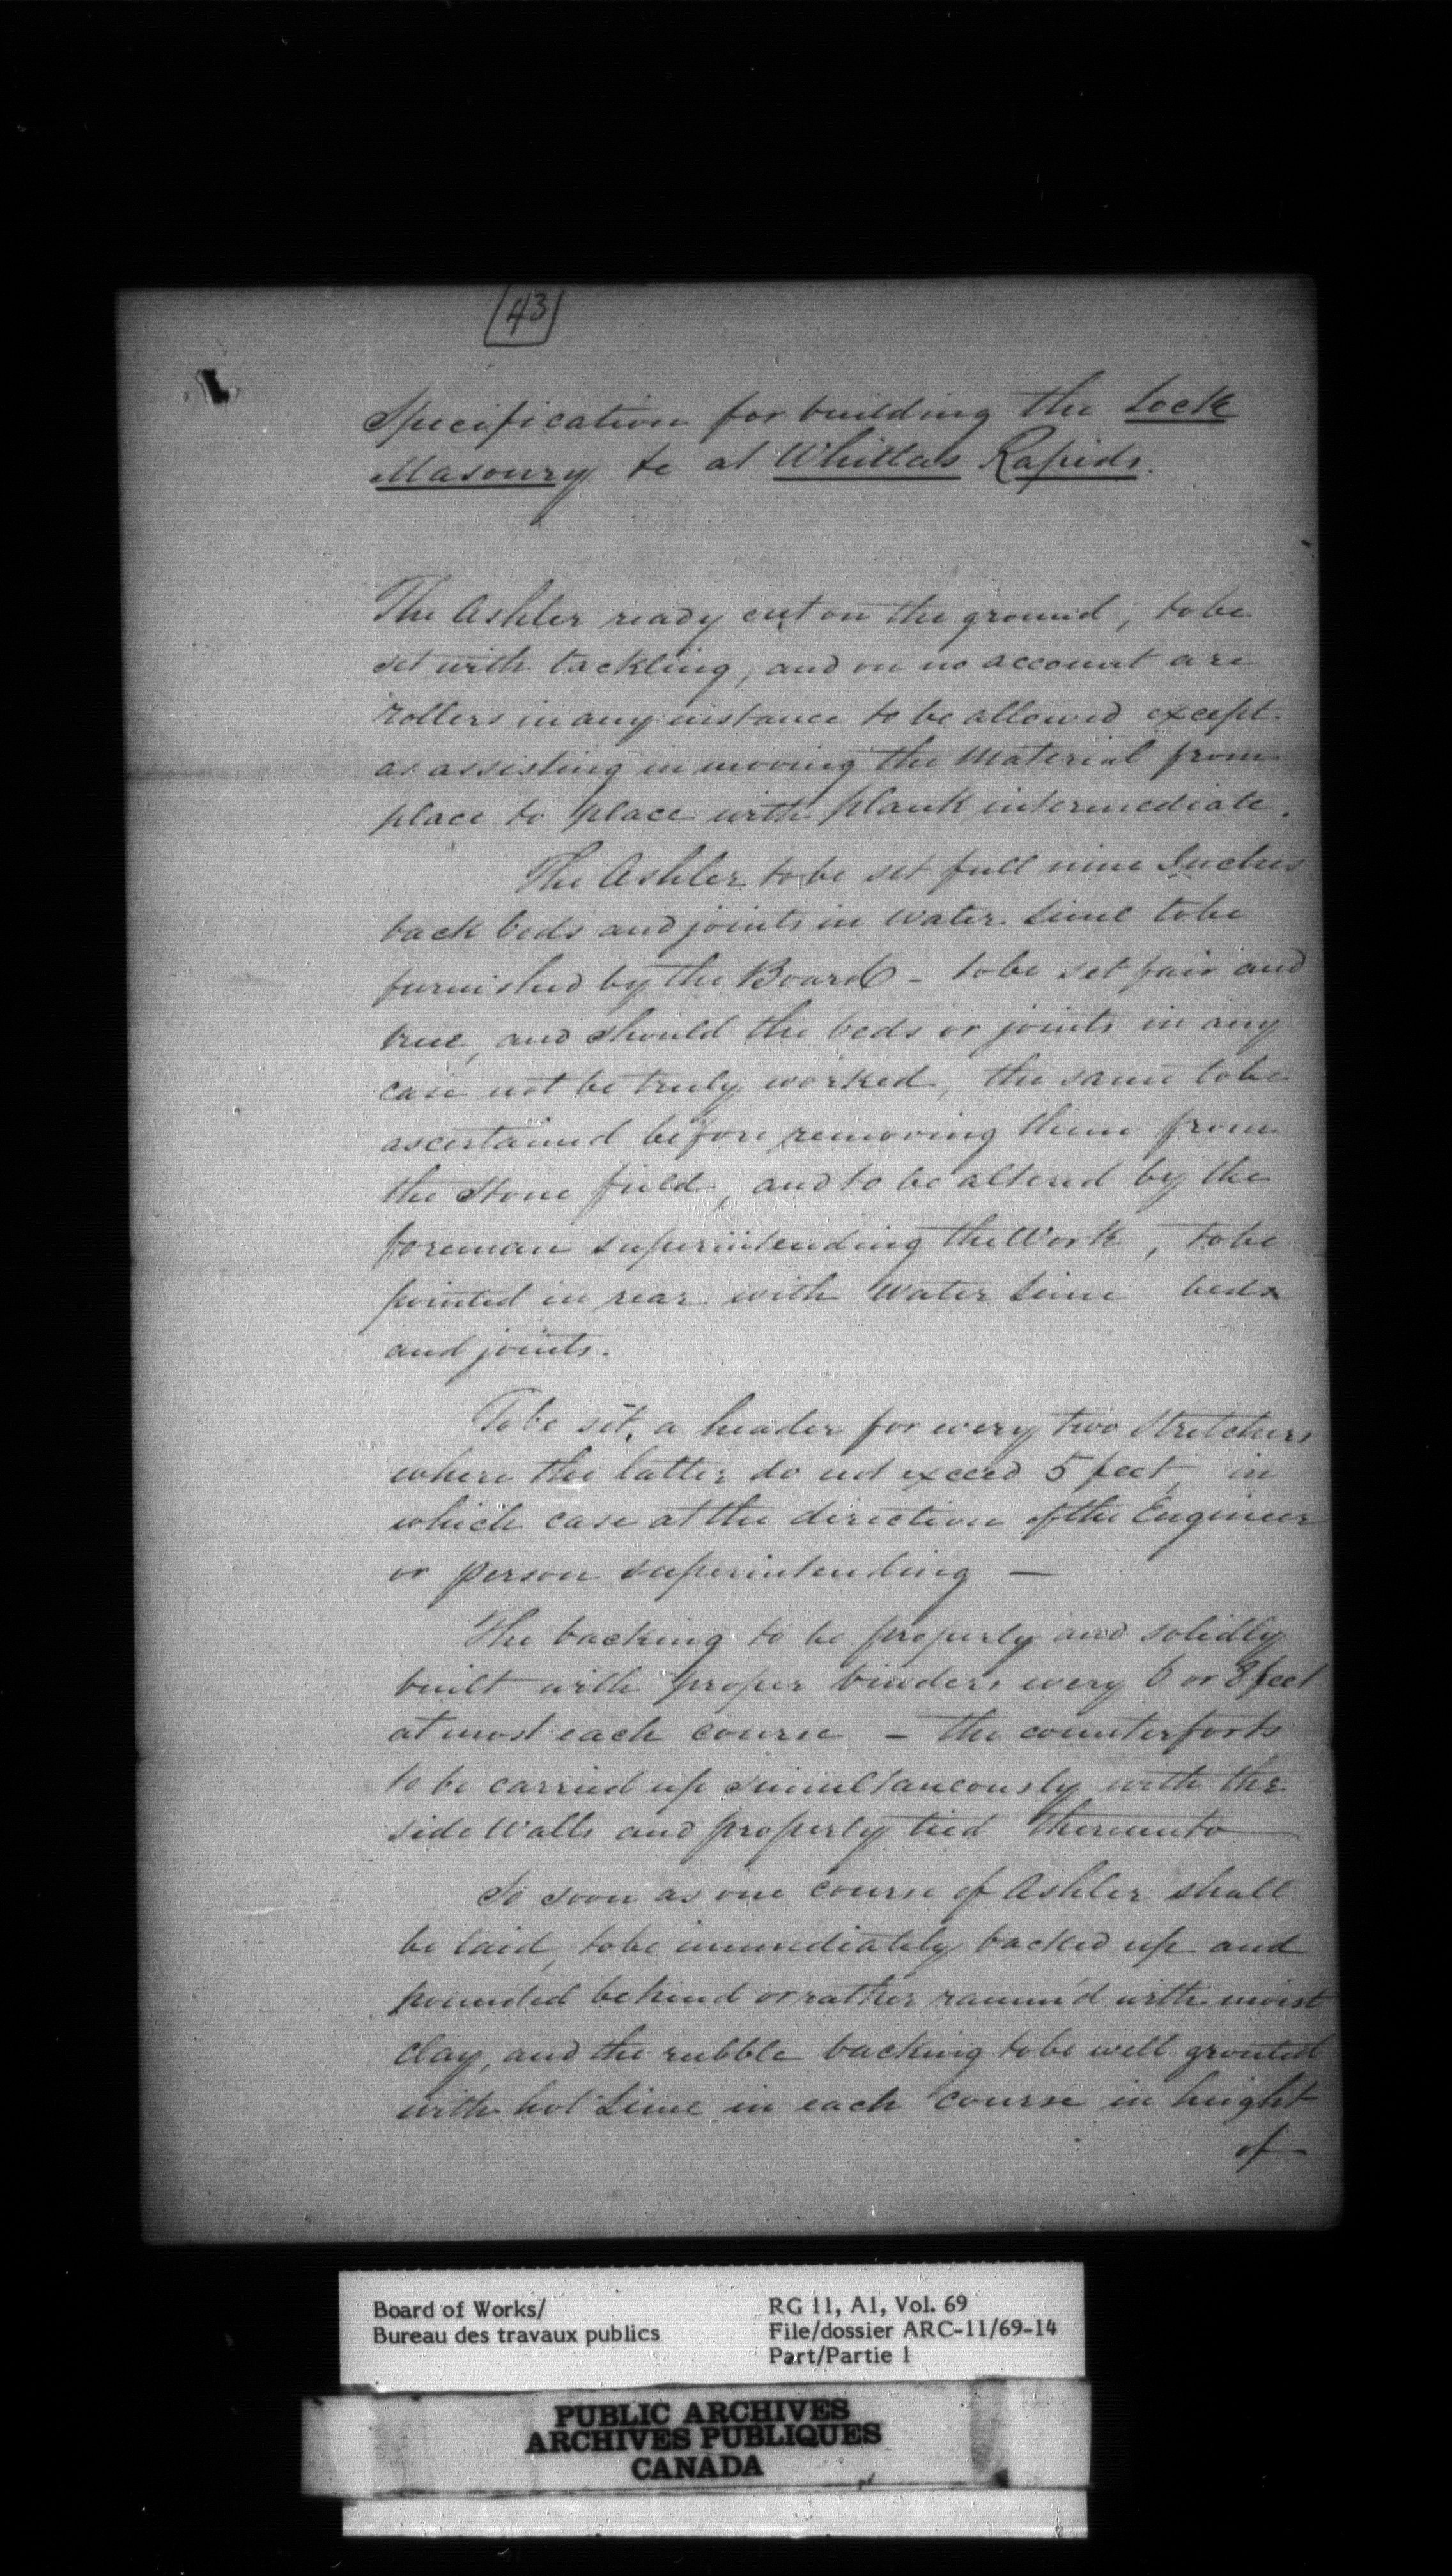 43
Specification for building the Lock
Masonry &c at Whitlas Rapids.
The Ashler ready cut on the ground, to be
set with tackling, and on no account are
rollers in any instance to be allowed except
as assisting in moving the Material from
place to place with plank intermediate.
The Ashler to be set full nine Inches
back beds and joints in Water Lime to be
furnished by the Board - to be set fair and
true, and should the beds or joints in any
case not be truly worked, the same to be
ascertained before removing them from
the Stone field, and to be altered by the
foreman superintending the Work, to be
pointed in rear with Water Lime beds
and joints.
To be set, a header for every two Stretchers
where the latter do not exceed 5 feet, in
which case at the direction of the Engineer
or person superintending —
The backing to be properly and solidly
built with proper binders every 6 or 8 feet
at most each course - the counterforts
to be carried up simultaneously with the
side Walls and properly tied thereunto
So soon as one course of Ashler shall
be laid, to be immediately backed up and
pounded behind or rather ramm'd with moist
clay, and the rubble backing to be well grouted
with hot Lime in each course in height
of
Board of Works/
Bureau des travaux publics
RG 11, A1, Vol. 69
File/dossier ARC-11/69-14
Part/Partie 1
PUBLIC ARCHIVES
ARCHIVES PUBLIQUES
CANADA